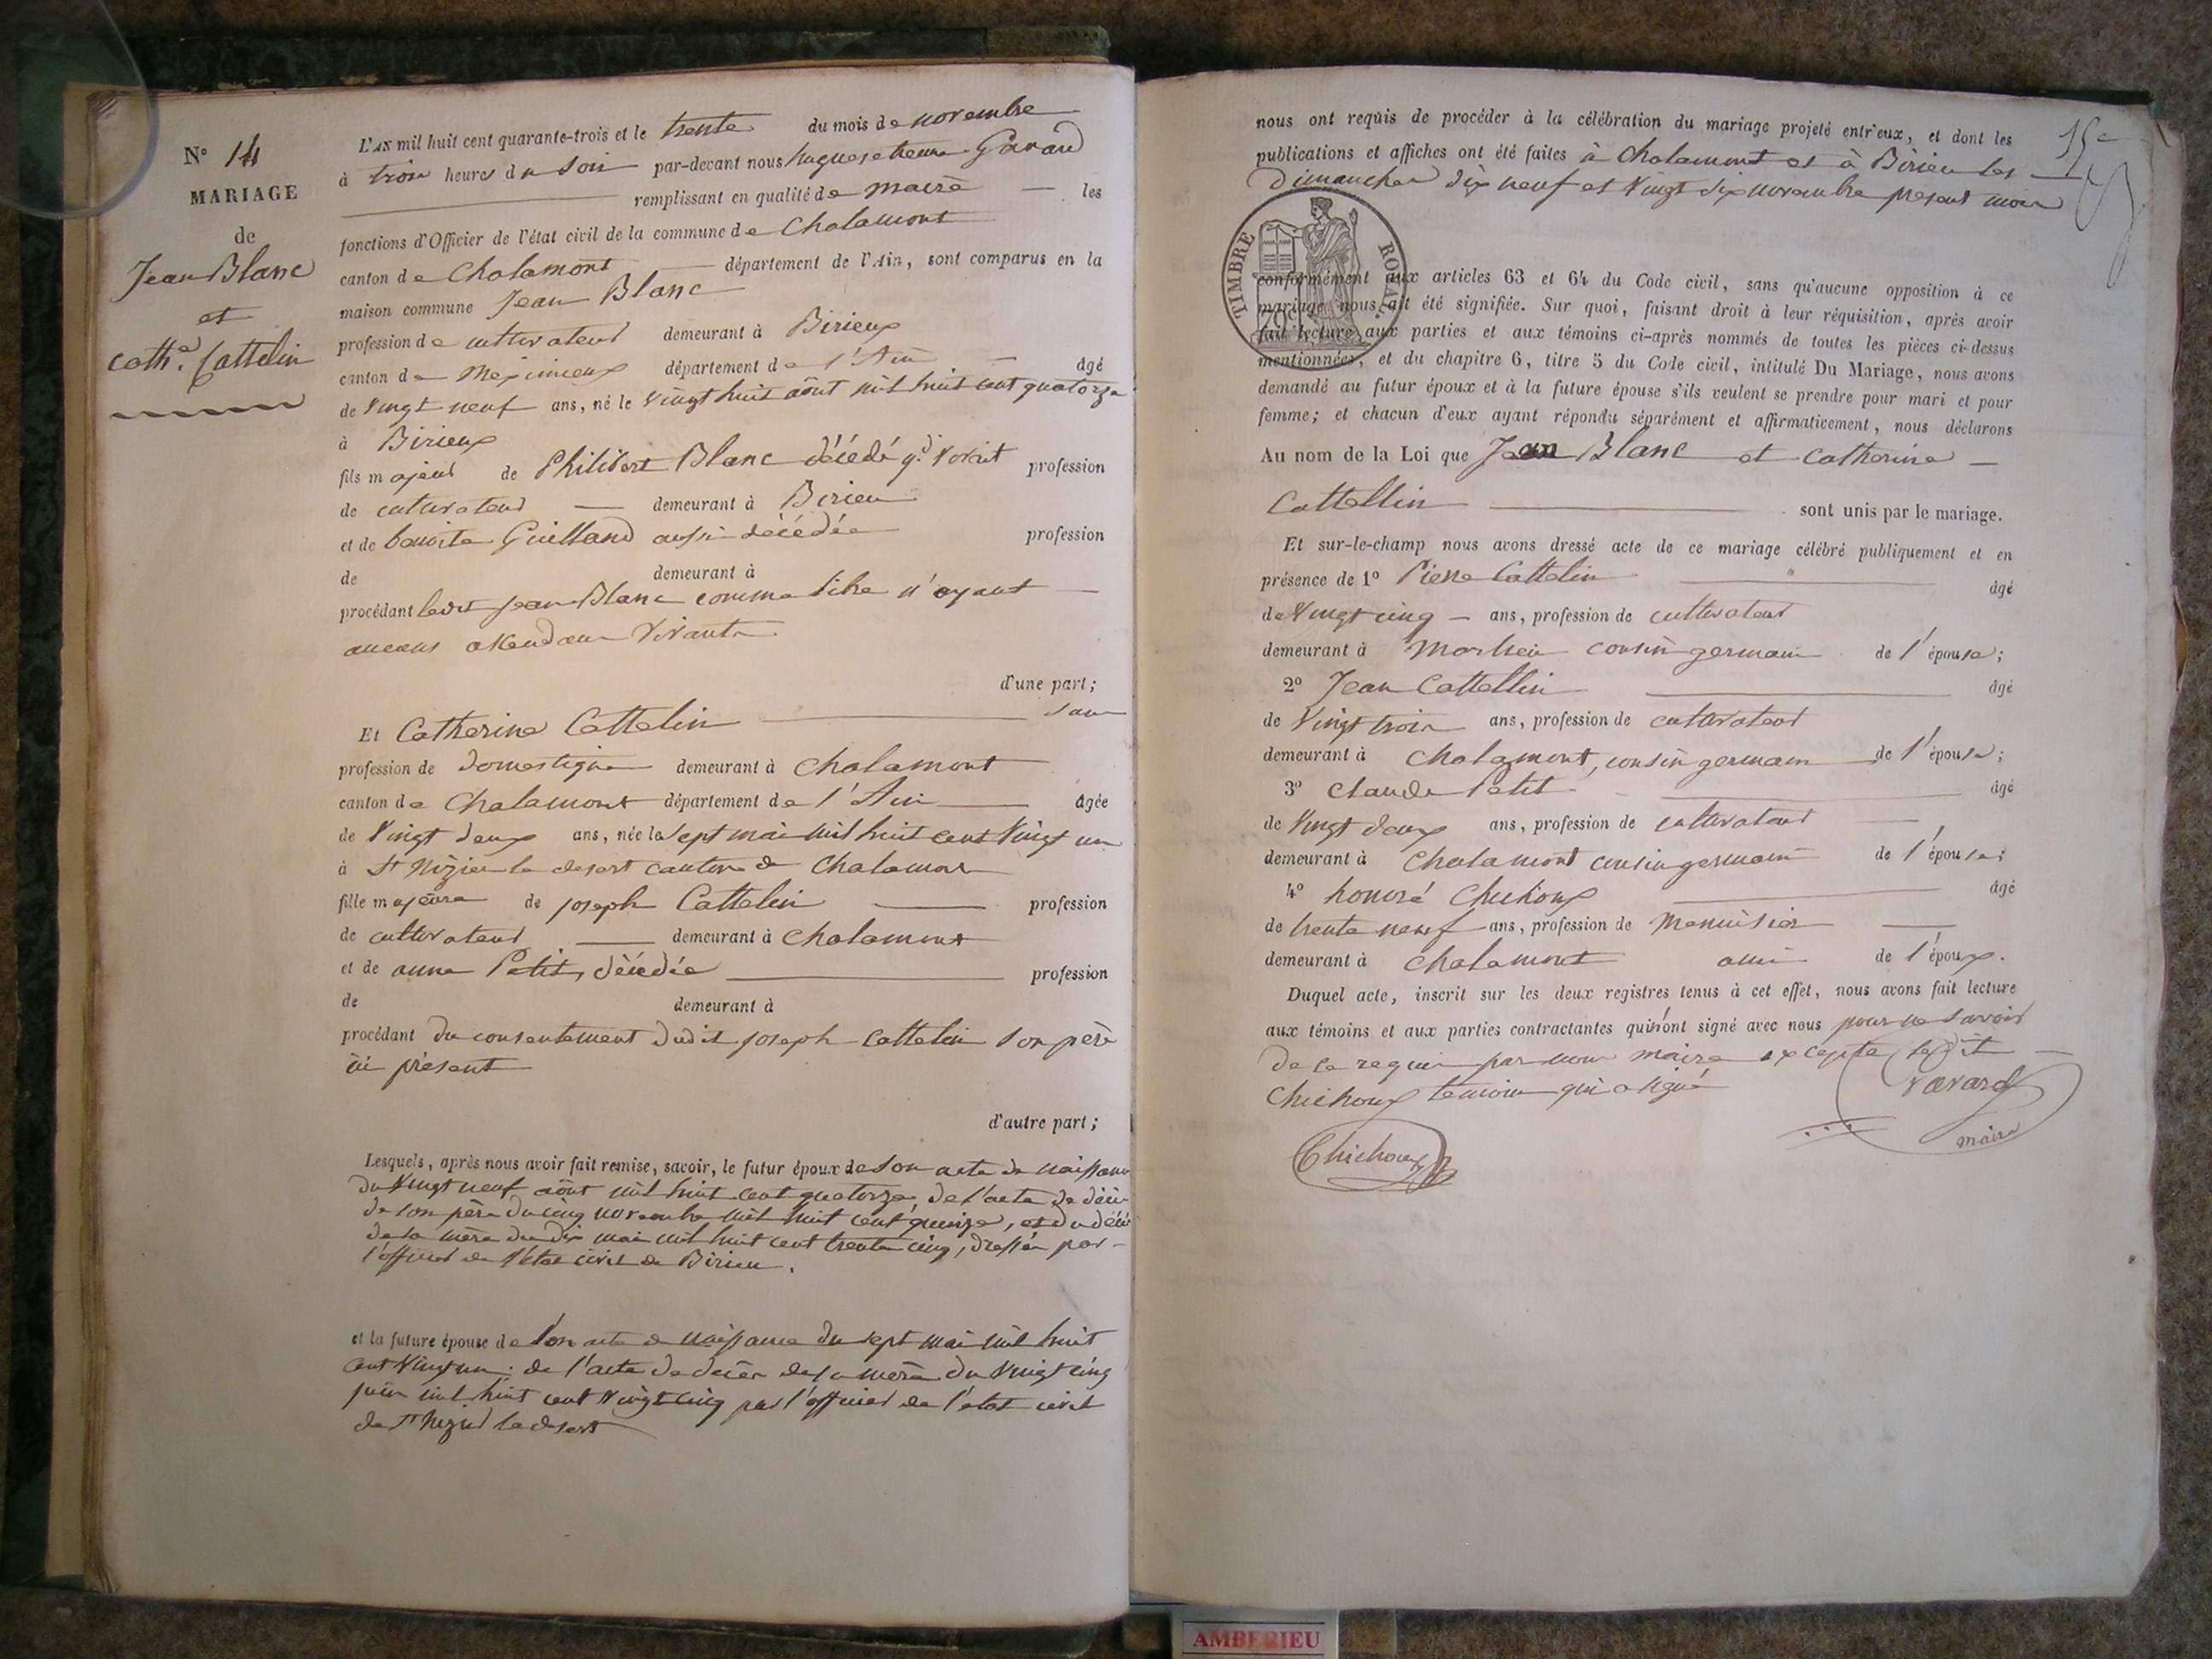 N° 14
MARIAGE
de
Jean Blanc
et
Cath.e Cattelin
L'AN mil huit cent quarante-trois et le trente du mois de novembre
à trois heures du soir par-devant nous hugues etienne
remplissant en qualité de maire les
fonctions d'Officier de l'état civil de la commune de Chalamont
canton de Chalamont département de l'Ain, sont comparus en la
maison commune Jean Blanc
profession de cultivateur demeurant à Birieux
canton de Meximieux département de l'Ain âgé
de Vingt neuf ans, né le Vingt huit août mil huit cent quatorze
à Birieux
fils majeur de Philibert Blanc décédé qd vivait profession
de cultivateur demeurant à Birieu
et de benoite Guilland aussi décédée profession
de demeurant à
procédant ledit Jean Blanc comme libre n'ayant
aucuns ascendans vivants.
d'une part;
Et Catherine Cattelin sans
profession de domestique demeurant à Chalamont
canton de Chalamont département de l'Ain âgée
de Vingt deux ans, née le sept mai mil huit cent Vingt un
à St Nizier le desert canton de Chalamont
fille majeure de joseph Cattelin profession
de cultivateur demeurant à Chalamont
et de anne Petit, décédée profession
de demeurant à
procédant du consentement dudit joseph Cattelin son père
ici présent
d'autre part;
Lesquels, après nous avoir fait remise, savoir, le futur époux de son acte de naissance
du Vingt neuf août mil huit cent quatorze, de l'acte de décès
de son père du cinq novembre mil huit cent quinze, et du décès
de sa mère du dix mai mil huit cent trente cinq, dressés par
l'officier de l'état civil de Birieu.
et la future épouse de son acte de naissance du sept mai mil huit
cent Vingt un; de l'acte de décès de sa mère du Vingt cinq
juin mil huit cent Vingt cinq par l'officier de l'état civil
de St Nizier le desert
15e
nous ont requis de procéder à la célébration du mariage projeté entr'eux, et dont les
publications et affiches ont été faites à Chalamont et à Birieu les
Dimanches dix neuf et Vingt six novembre présent mois
TIMBRE ROYAL
conformément aux articles 63 et 64 du Code civil, sans qu'aucune opposition à ce
mariage nous ait été signifiée. Sur quoi, faisant droit à leur réquisition, après avoir
fait lecture aux parties et aux témoins ci-après nommés de toutes les pièces ci-dessus
mentionnées, et du chapitre 6, titre 5 du Code civil, intitulé Du Mariage, nous avons
demandé au futur époux et à la future épouse s'ils veulent se prendre pour mari et pour
femme; et chacun d'eux ayant répondu séparément et affirmativement, nous déclarons
Au nom de la Loi que Jean Blanc et Catherine
Cattellin sont unis par le mariage.
Et sur-le-champ nous avons dressé acte de ce mariage célébré publiquement et en
présence de 1° Pierre Cattelin âgé
de Vingt cinq ans, profession de cultivateur
demeurant à cousin germain de l'épouse;
2° Jean Cattellin âgé
de Vingt trois ans, profession de cultivateur
demeurant à Chalamont, cousin germain de l'épouse;
3° Claude Petit âgé
de Vingt deux ans, profession de cultivateur
demeurant à Chalamont cousin germain de l'épouse;
4° honoré Chichoux âgé
de trente neuf ans, profession de Menuisier
demeurant à Chalamont ami de l'époux.
Duquel acte, inscrit sur les deux registres tenus à cet effet, nous avons fait lecture
aux témoins et aux parties contractantes qui n'ont signé avec nous pour ne savoir
de ce requis par nous maire excepté ledit
Chichoux témoin qui a signé
maire
Chichoux
AMBERIEU